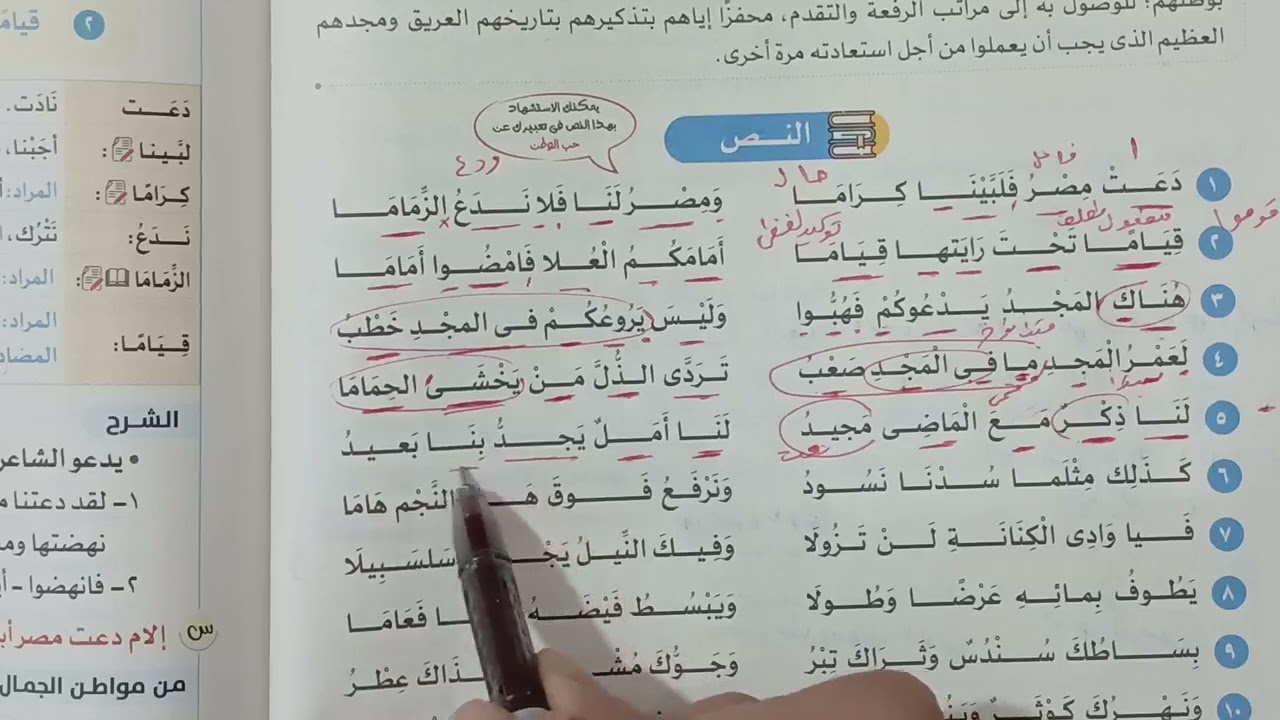 بوطنهم؛ للوصول به إلى مراتب الرفعة والتقدم، محفزًا إياهم بتذكيرهم بتاريخهم العريق ومجدهم
العظيم الذى يجب أن يعملوا من أجل استعادته مرة أخرى.
يمكنك الاستشهاد
بهذا النص فى تعبيرك عن
حب الوطن
النص
١ دَعَتْ مِصْرُ فَلَبَّيْنَا كِرَامَا وَمِصْرُ لَنَا فَلا نَدَعُ الزِّمَامَا
٢ قِيَامًا تَحْتَ رَايَتِها قِيَامَا أَمَامَكُمُ الْعُلا فَامْضُوا أَمَامَا
٣ هُنَاكَ المَجْدُ يَدْعُوكُمْ فَهُبُّوا وَلَيْسَ يَرُوعُكُمْ فى المجْدِ خَطْبُ
٤ لَعَمْرُ الْمَجدِ ما فِى الْمَجْدِ صَعْبُ تَرَدَّى الذُّلَّ مَنْ يَخْشَى الحِمَامَا
٥ لَنَا ذِكْرٌ مَعَ الْمَاضِى مَجيدُ لَنَا أَمَلٌ يَجِدُّ بِنَا بَعيدُ
٦ كَذَلِك مِثْلَما سُدْنَا نَسُودُ وَنَرْفَعُ فَوْقَ النَّجْم هَامَا
٧ فَيا وَادِى الْكِنَانَةِ لَنْ تَزُولَا وَفِيكَ النِّيلُ سَلسَبِيلَا
٨ يَطُوفُ بِمائِهِ عَرْضًا وَطُولَا وَيَبْسُطُ فَيْضَهُ فَعَامَا
٩ بِسَاطُكَ سُنْدُسٌ وَثَرَاكَ تِبْرُ وَجَوُّكَ عِطْرُ
١٠ وَنَهْرُكَ كَوْثَرٌ
حال
فاعل
ودع
مفعول مطلق
توكيد لفظى
قوموا
٢
دَعَت نَادَت.
لبَّينا : أجَبْنا،
كِرَامًا : المراد:
نَدَعُ: نَتْرُك،
الزِّمَامَا : المراد:
قِيَامًا: المراد:
المضاد
الشرح
• يدعو الشاعر
١- لقد دعتنا
نهضتها
٢- فانهضوا -
س إلام دعت مصر
من مواطن الجمال